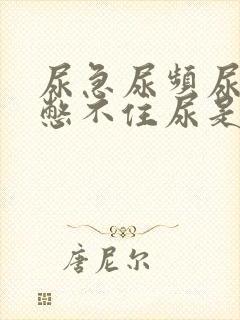 尿急尿頻尿
憋不住尿是
唐尼尔